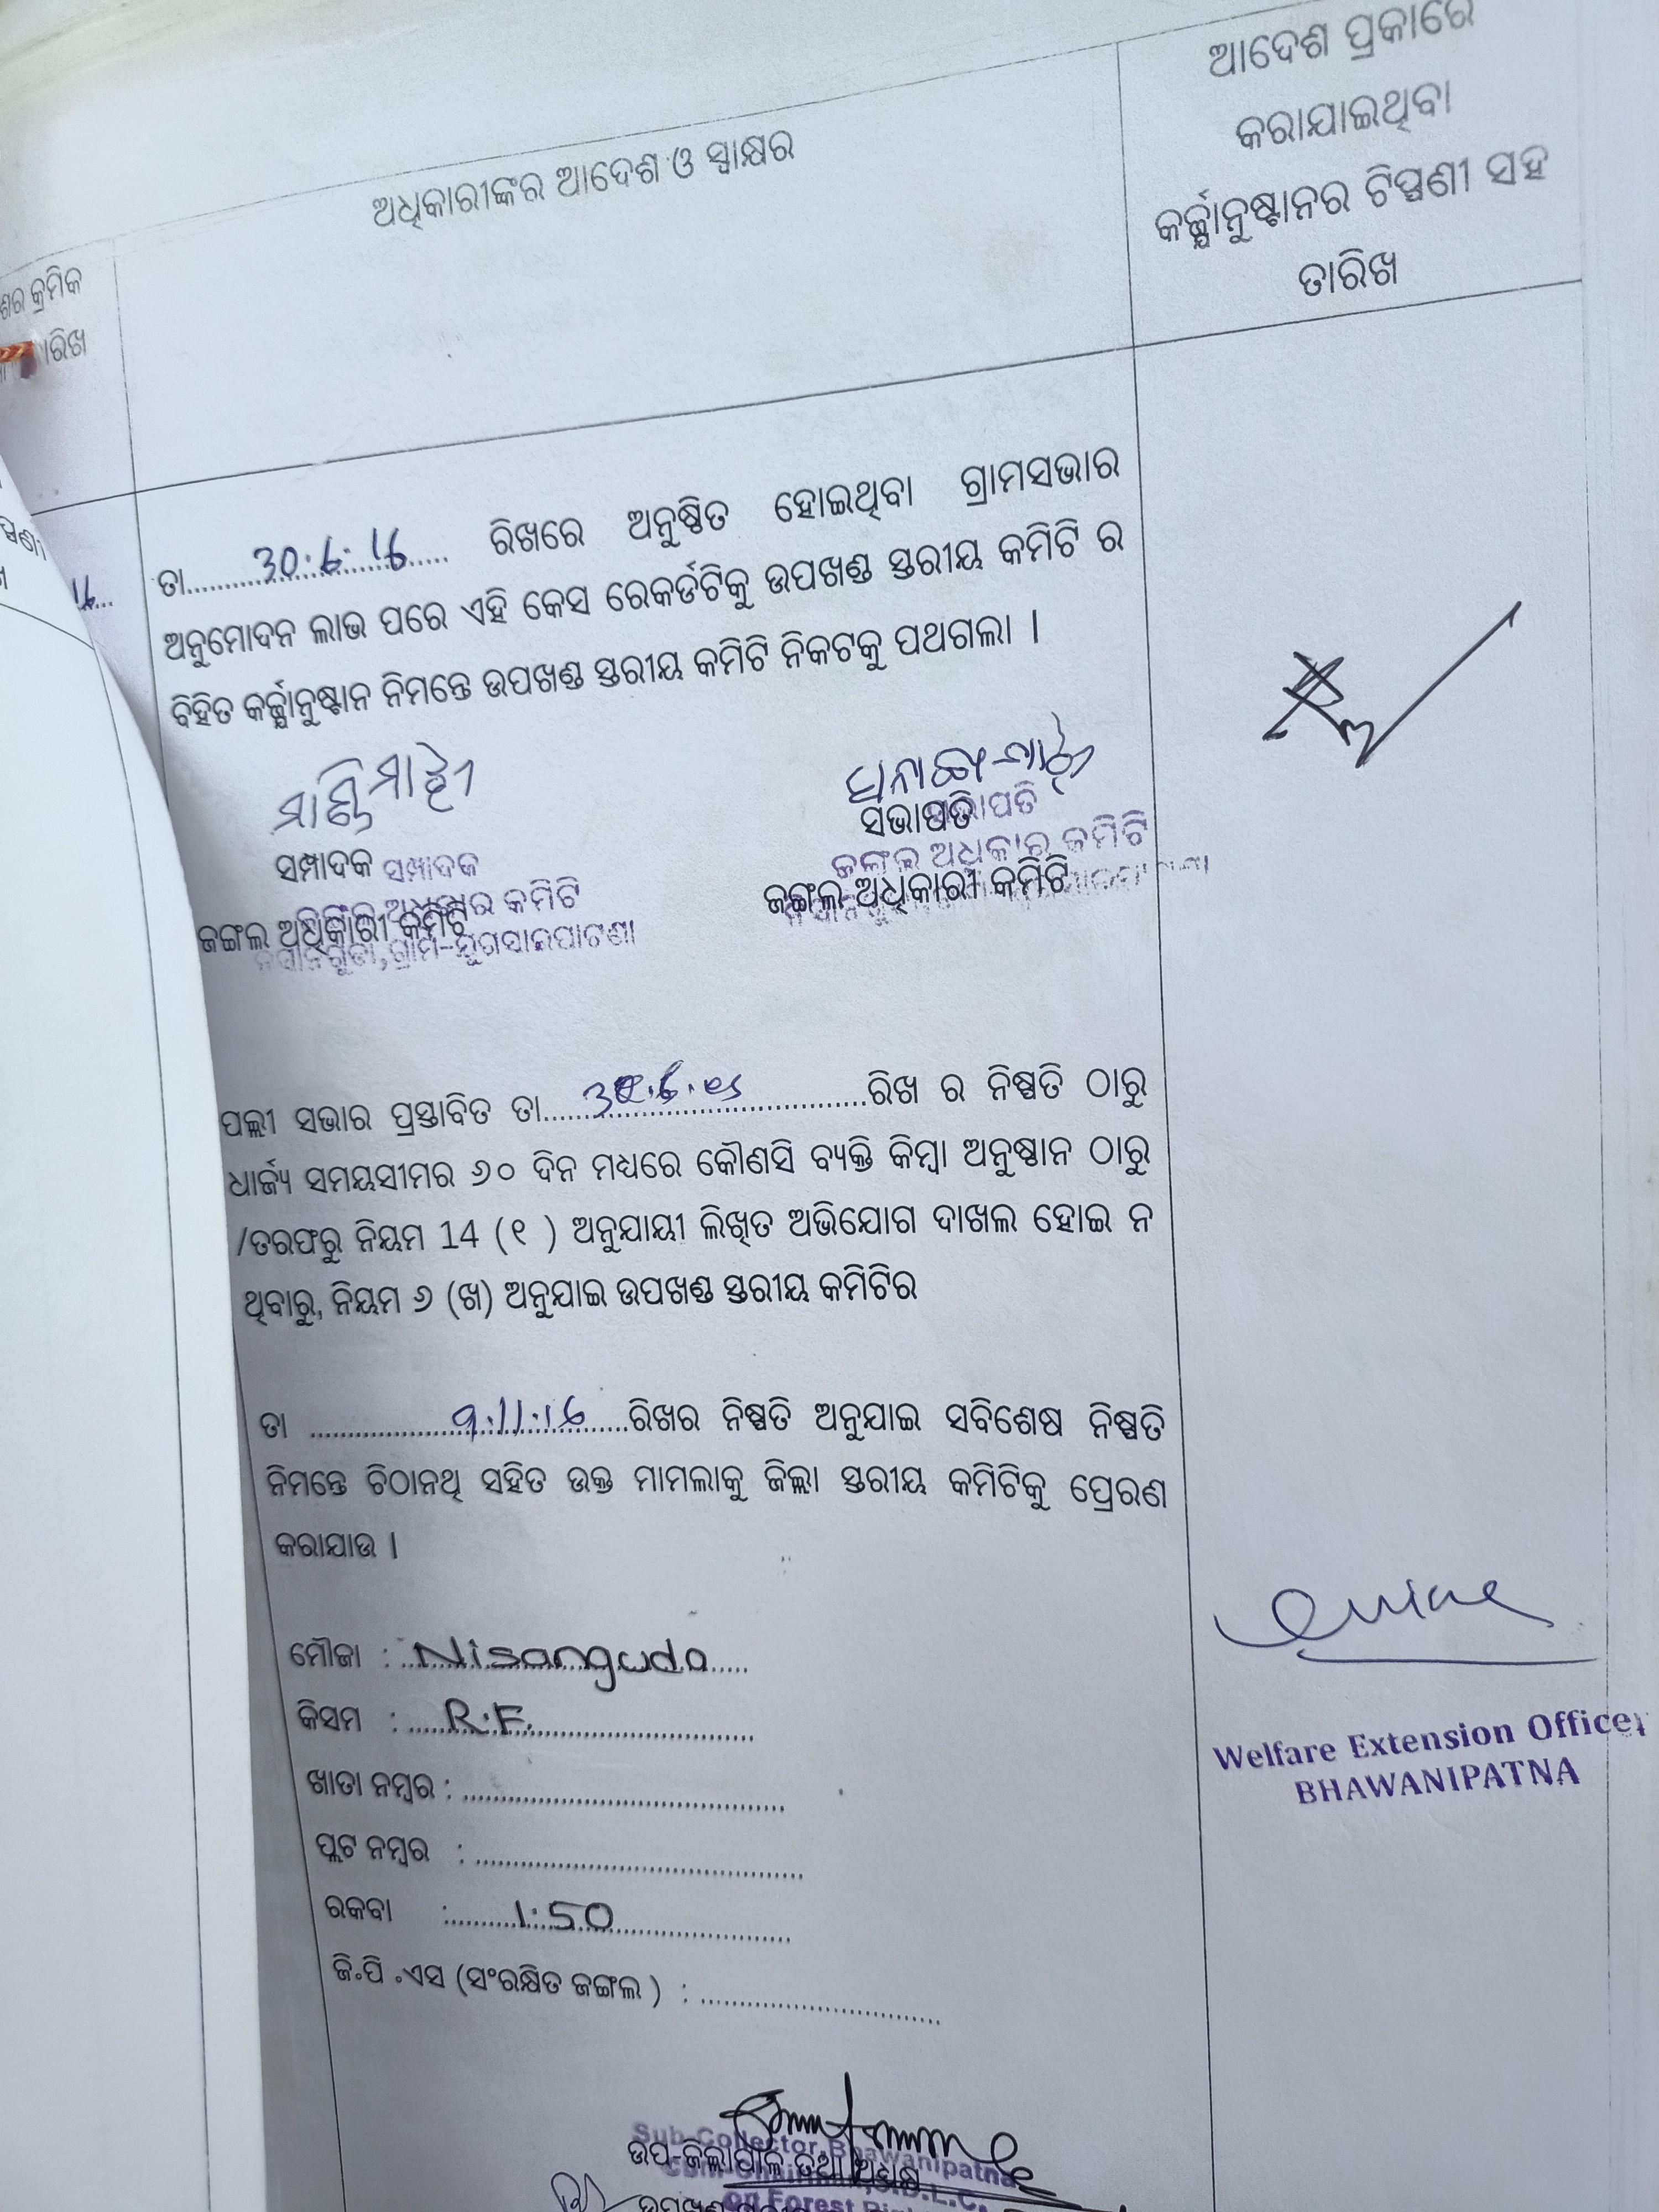 ଆଦେଶ ପ୍ରକାରେ
କରାଯାଇଥିବା
କର୍ଜ୍ଯାନୁଷ୍ଟାନର ଟିପ୍ପଣୀ ସହ
ତାରିଖ
ଅଧିକାରୀଙ୍କର ଆଦେଶ ଓ ସ୍ୱାକ୍ଷର
କ୍ରମିକ
ତା.......30.6.16....... ରିଖରେ ଅନୁଷ୍ଠିତ ହୋଇଥିବା ଗ୍ରାମସଭାର
ଅନୁମୋଦନ ଲାଭ ପରେ ଏହି କେସ ରେକର୍ଡଟିକୁ ଉପଖଣ୍ଡ ସ୍ତରୀୟ କମିଟି ର
ବିହିତ କର୍ଜ୍ଯାନୁଷ୍ଟାନ ନିମନ୍ତେ ଉପଖଣ୍ଡ ସ୍ତରୀୟ କମିଟି ନିକଟକୁ ପଥଗଲା ।
ସମ୍ପାଦକ ସମ୍ପାଦକ
ଜଙ୍ଗଲ ଅଧିକାରୀ କମିଟି
ସଭାପତି
ଜଙ୍ଗଲ ଅଧିକାର କମିଟି
ଜଙ୍ଗଲ ଅଧିକାରୀ କମିଟି
ପଲ୍ଲୀ ସଭାର ପ୍ରସ୍ତାବିତ ତା..............ରିଖ ର ନିଷ୍ପତି ଠାରୁ
ଧାର୍ଜ୍ୟ ସମୟସୀମର ୬୦ ଦିନ ମଧ୍ୟରେ କୌଣସି ବ୍ୟକ୍ତି କିମ୍ବା ଅନୁଷ୍ଠାନ ଠାରୁ
/ତରଫରୁ ନିୟମ 14 (୧ ) ଅନୁଯାୟୀ ଲିଖିତ ଅଭିଯୋଗ ଦାଖଲ ହୋଇ ନ
ଥିବାରୁ, ନିୟମ ୬ (ଖ) ଅନୁଯାଇ ଉପଖଣ୍ଡ ସ୍ତରୀୟ କମିଟିର
ତା .......9.11.16.......ରିଖର ନିଷ୍ପତି ଅନୁଯାଇ ସବିଶେଷ ନିଷ୍ପତି
ନିମନ୍ତେ ଚିଠାନଥି ସହିତ ଉକ୍ତ ମାମଲାକୁ ଜିଲ୍ଲା ସ୍ତରୀୟ କମିଟିକୁ ପ୍ରେରଣ
କରାଯାଉ ।
ମୌଜା : Nisanguda
କିସମ : R.F.
ଖାତା ନମ୍ବର :
ପ୍ଲଟ ନମ୍ବର :
ରକବା : 1.50
ଜି.ପି.ଏସ (ସଂରକ୍ଷିତ ଜଙ୍ଗଲ ) :
Welfare Extension Officer
BHAWANIPATNA
Sub-Collector, Bhawanipatna
ଉପ-ଜିଲ୍ଲାପାଳ ତଥା ଅଧ୍ୟକ୍ଷ
on Forest